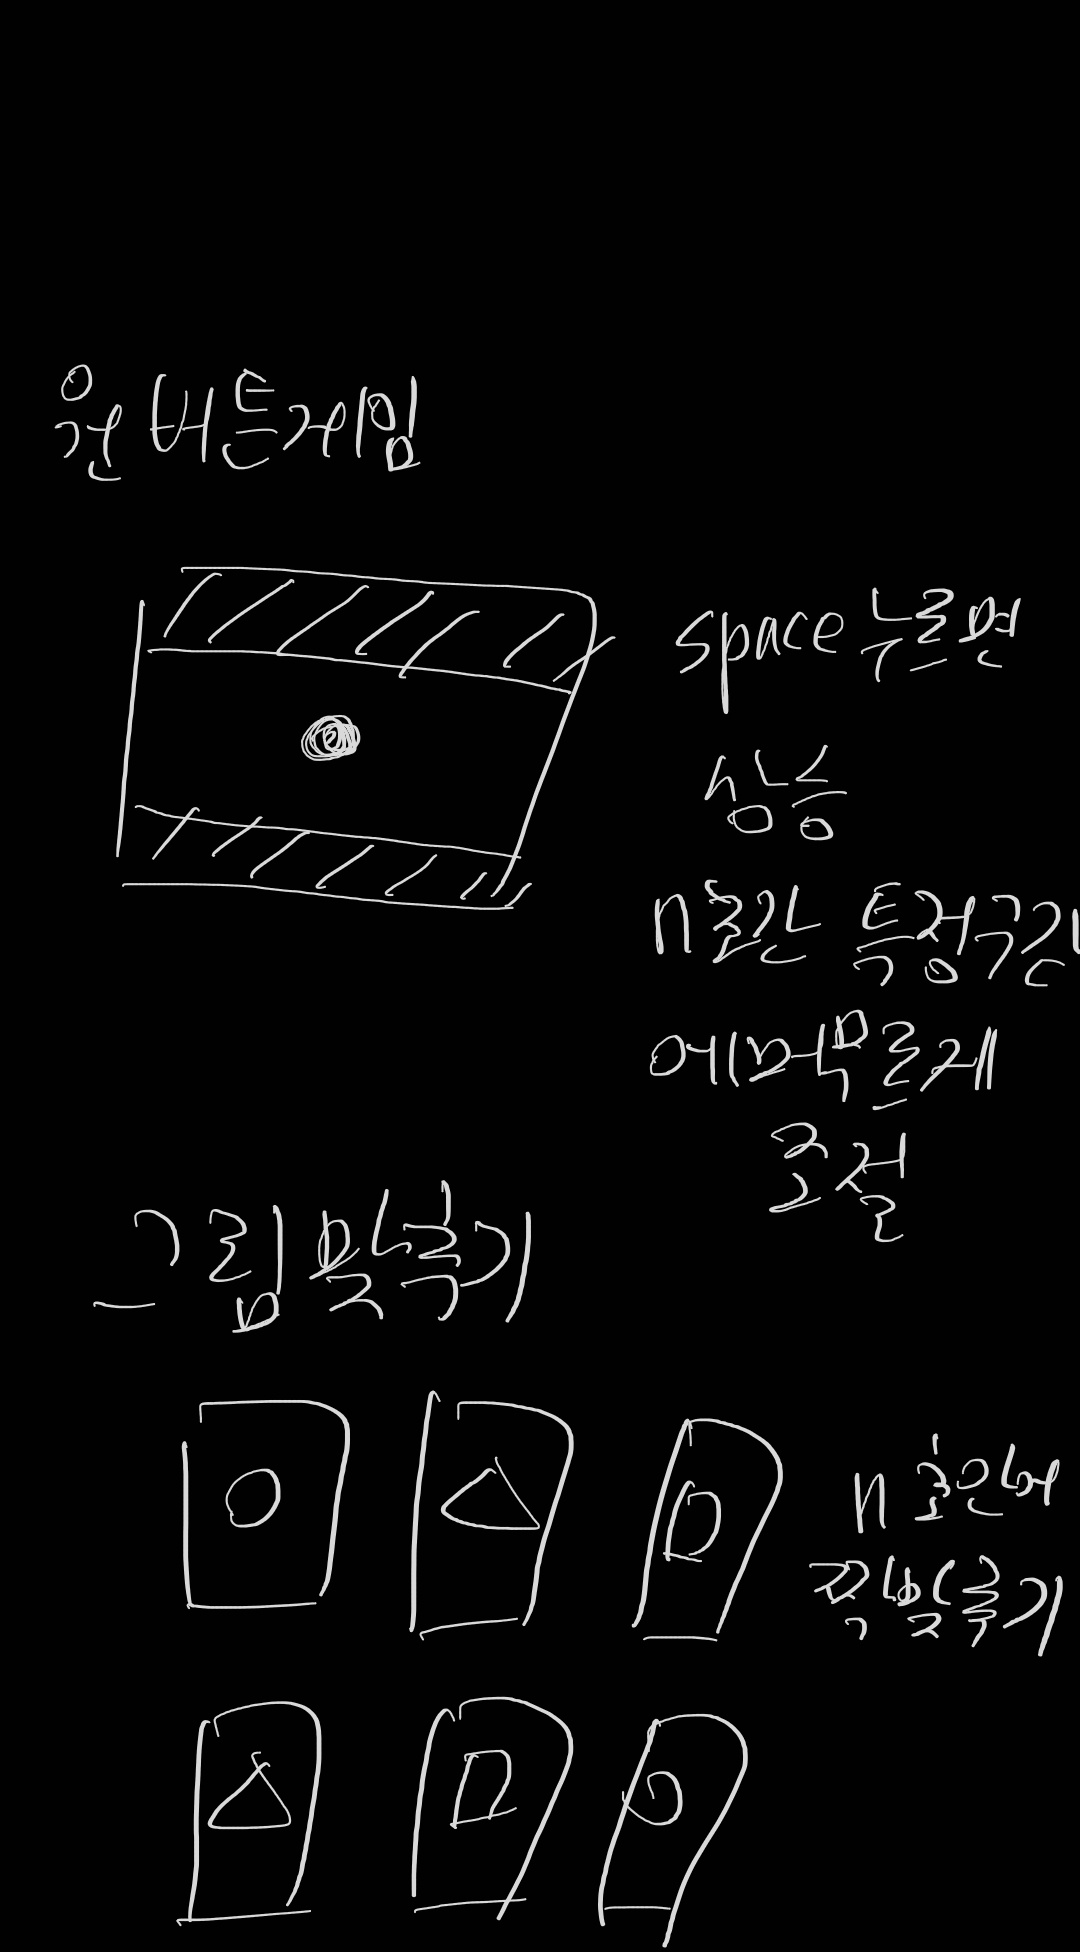 원버튼게임
space 누르면
상승
n초간 특정구간
에 머무르게
조절
그림맞추기
n초안에
짝맞추기